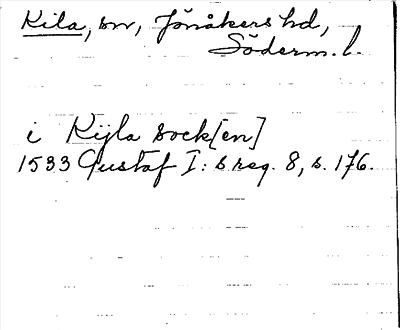 Kila, sn, Jönåkers hd,
Söderm. l.
i Kijla sock[en]
1533 Gustaf I:s reg. 8, s. 176.